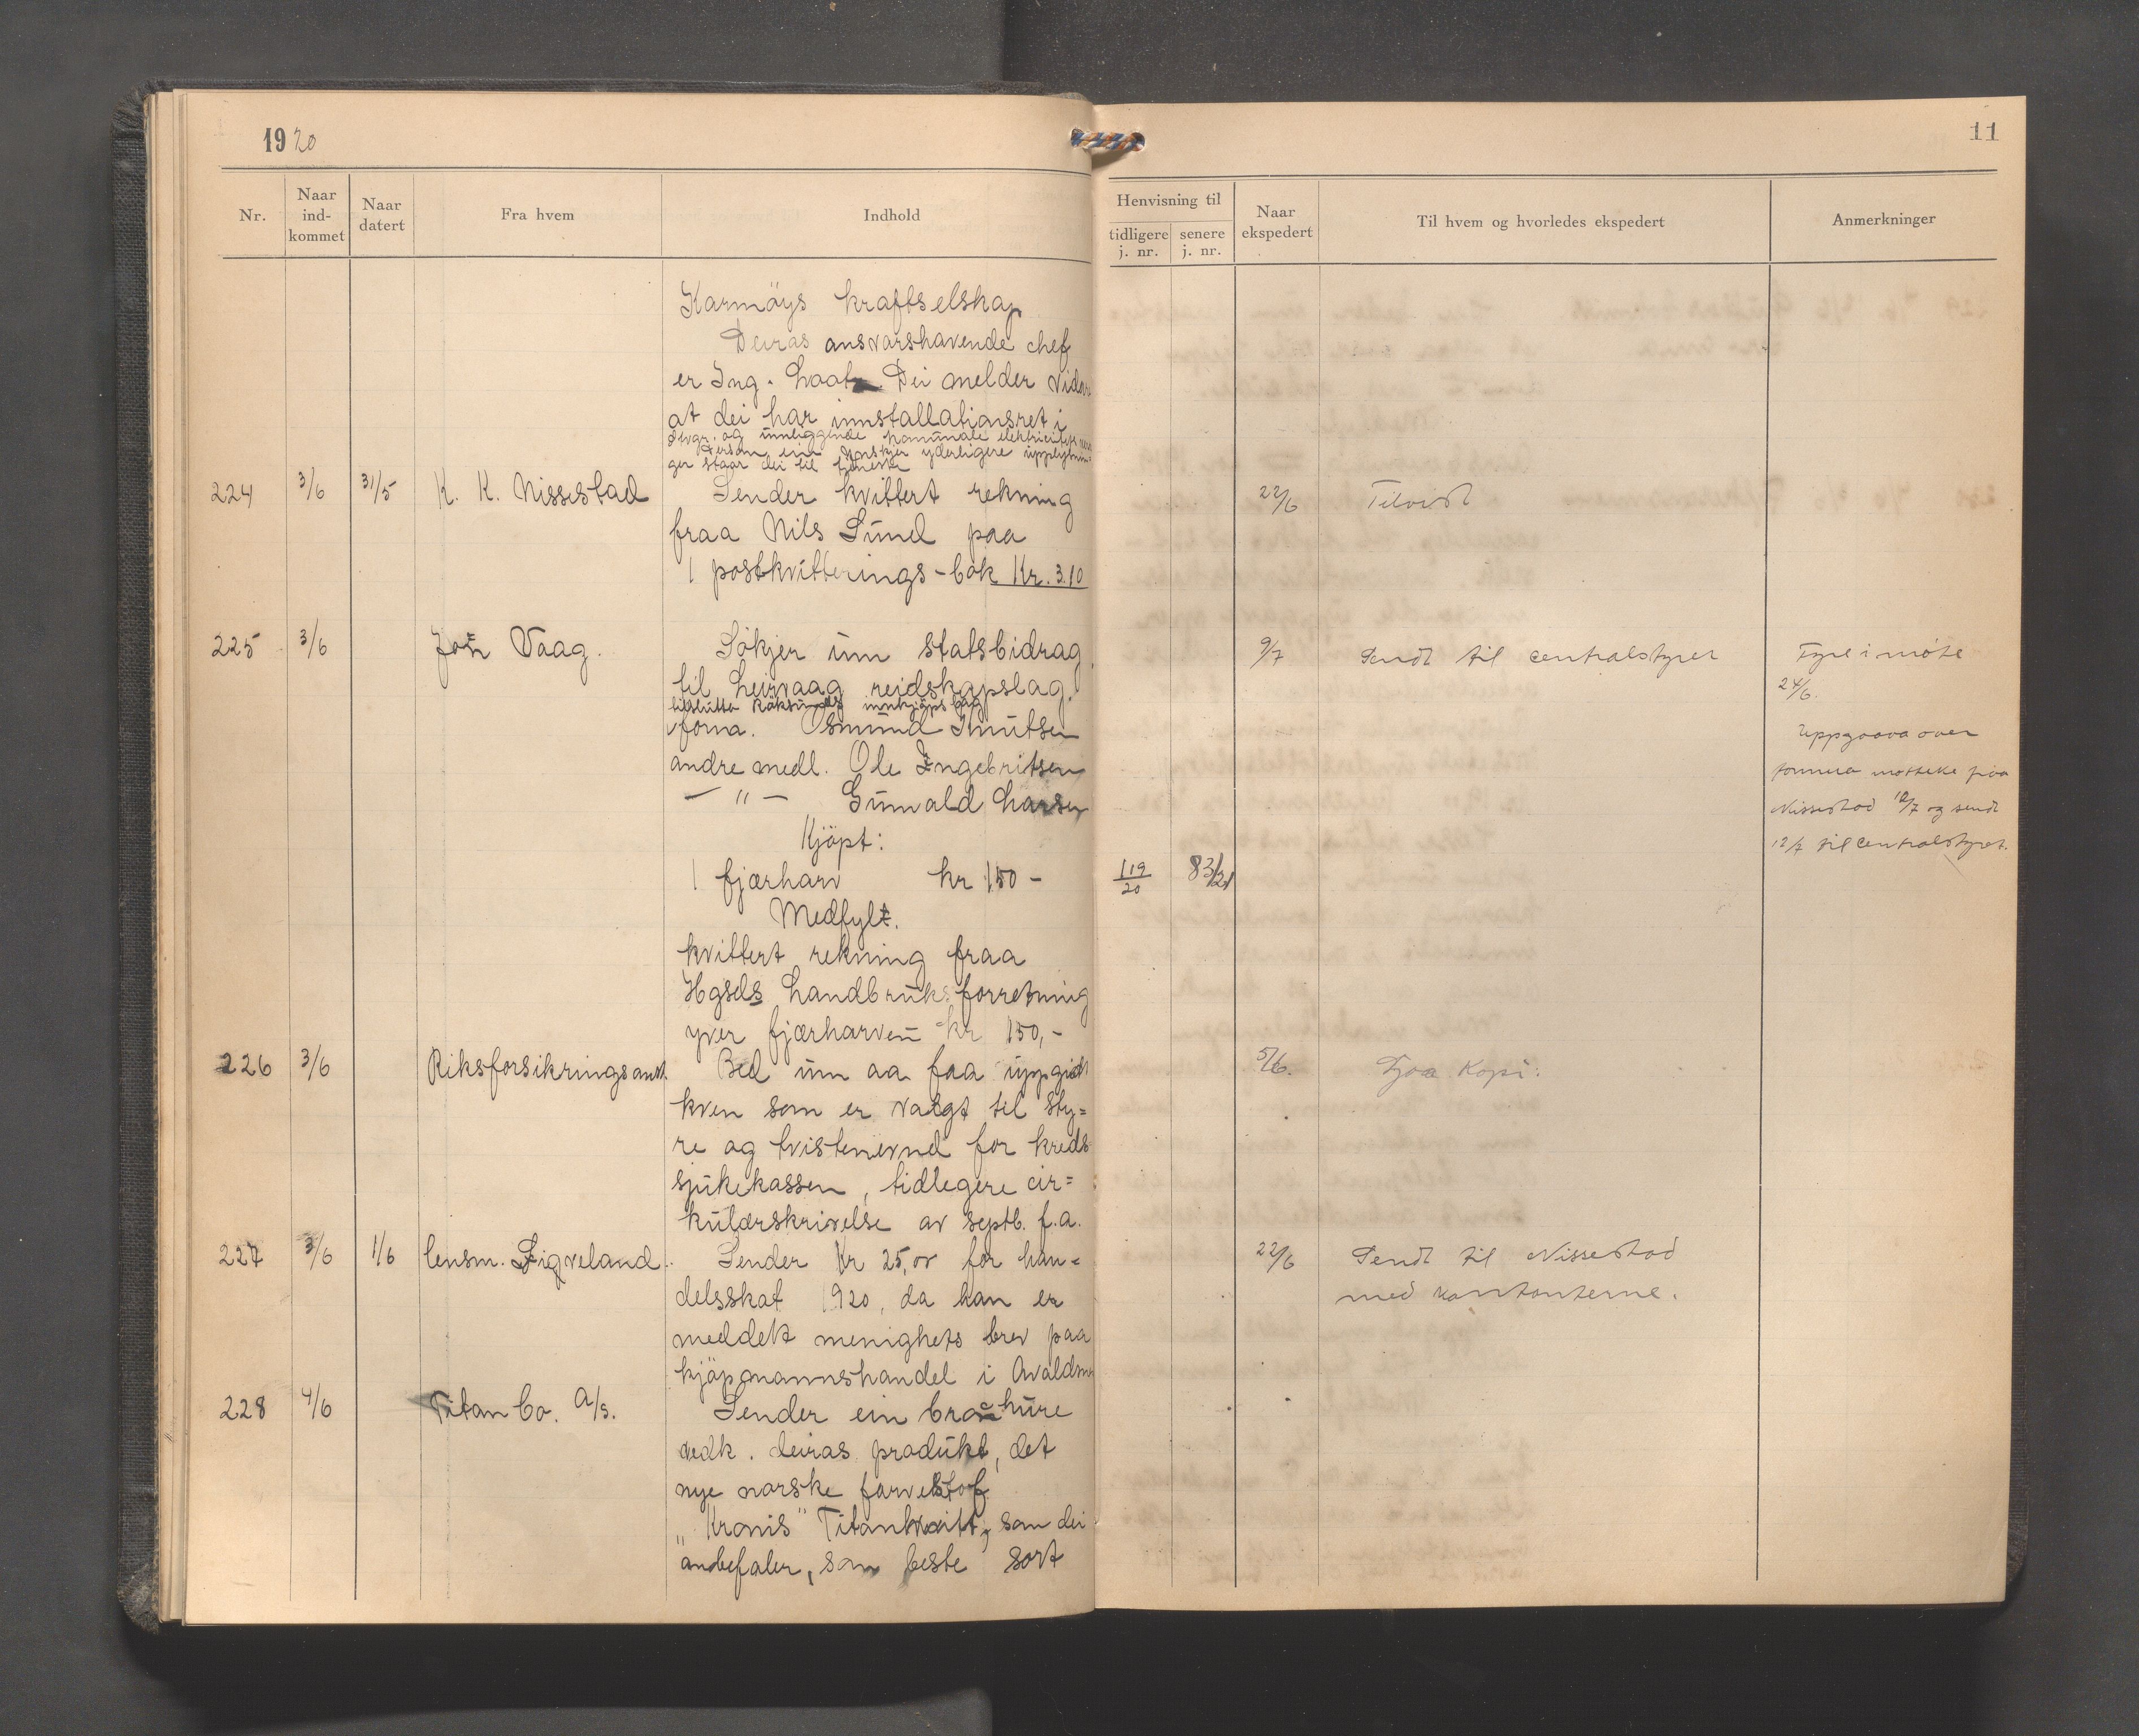 1920
Nr.
Naar ind-kommet
Naar datert
Fra hvem
Indhold
Karmöys kraftselskap
Deiras ansvarshavende chef
er Ing. Dei melder vidare
at dei har innstallationsret i
og innliggende komunale
Dersom ein ynskjer yderligere upplysnin-
ger staar dei til tjeneste
224 3/6 31/5 K. K. Nissestad Sender kvittert rekning
fraa Nils Sund paa
1 postkvitterings-bok Kr. 3.10
225 3/6 Jon Vaag. Sökjer um statsbidrag
til Leirvaag reidskapslag.
tilslutta innkjöpslag
forma. Osmund Knutsen
andre medl. Ole Ingebritsen
— " — Gunvald Larsen
Kjöpt:
1 fjærharv kr 150 -
Medfylt.
kvittert rekning fraa
Hgsds Landbruksforretning
yver fjærharven kr 150,-
226 3/6 Riksforsikringsanst. Bed um aa faa uppgidt
kven som er valgt til sty=
re og tvistenevnd for kreds
sjukekassen, tidlegere cir=
kulærskrivelse av septb. f.a.
227 3/6 1/6 lensm. Sigveland. Sender Kr 25,00 for han=
delsskat 1920, da han er
meddelt menighets brev paa
kjöpmannshandel i Avaldsnes
228 4/6 Titan Co. A/s. Sender ein brochure
vedk. deiras produkt, det
nye norske farvestof
„Kronis" Titanhvitt, som dei
anbefaler, som beste sort
11
Henvisning til
tidligere j. nr.
senere j. nr.
Naar ekspedert
Til hvem og hvorledes ekspedert
Anmerkninger
22/6 Tilvist
9/7 Sendt til centralstyret
Fyre i møte
24/6.
Uppgaava over
motteke fraa
Nissestad 10/7 og sendt
12/7 til Centralstyret.
119/20 83/21
5/6. Sjaa Kopi.
22/6 Sendt til Nissestad
med kontonterne.